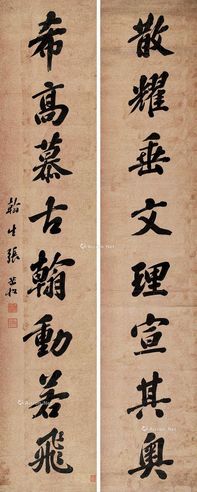 散耀垂文理宣其奥
希高慕古翰動若飛
翰生張